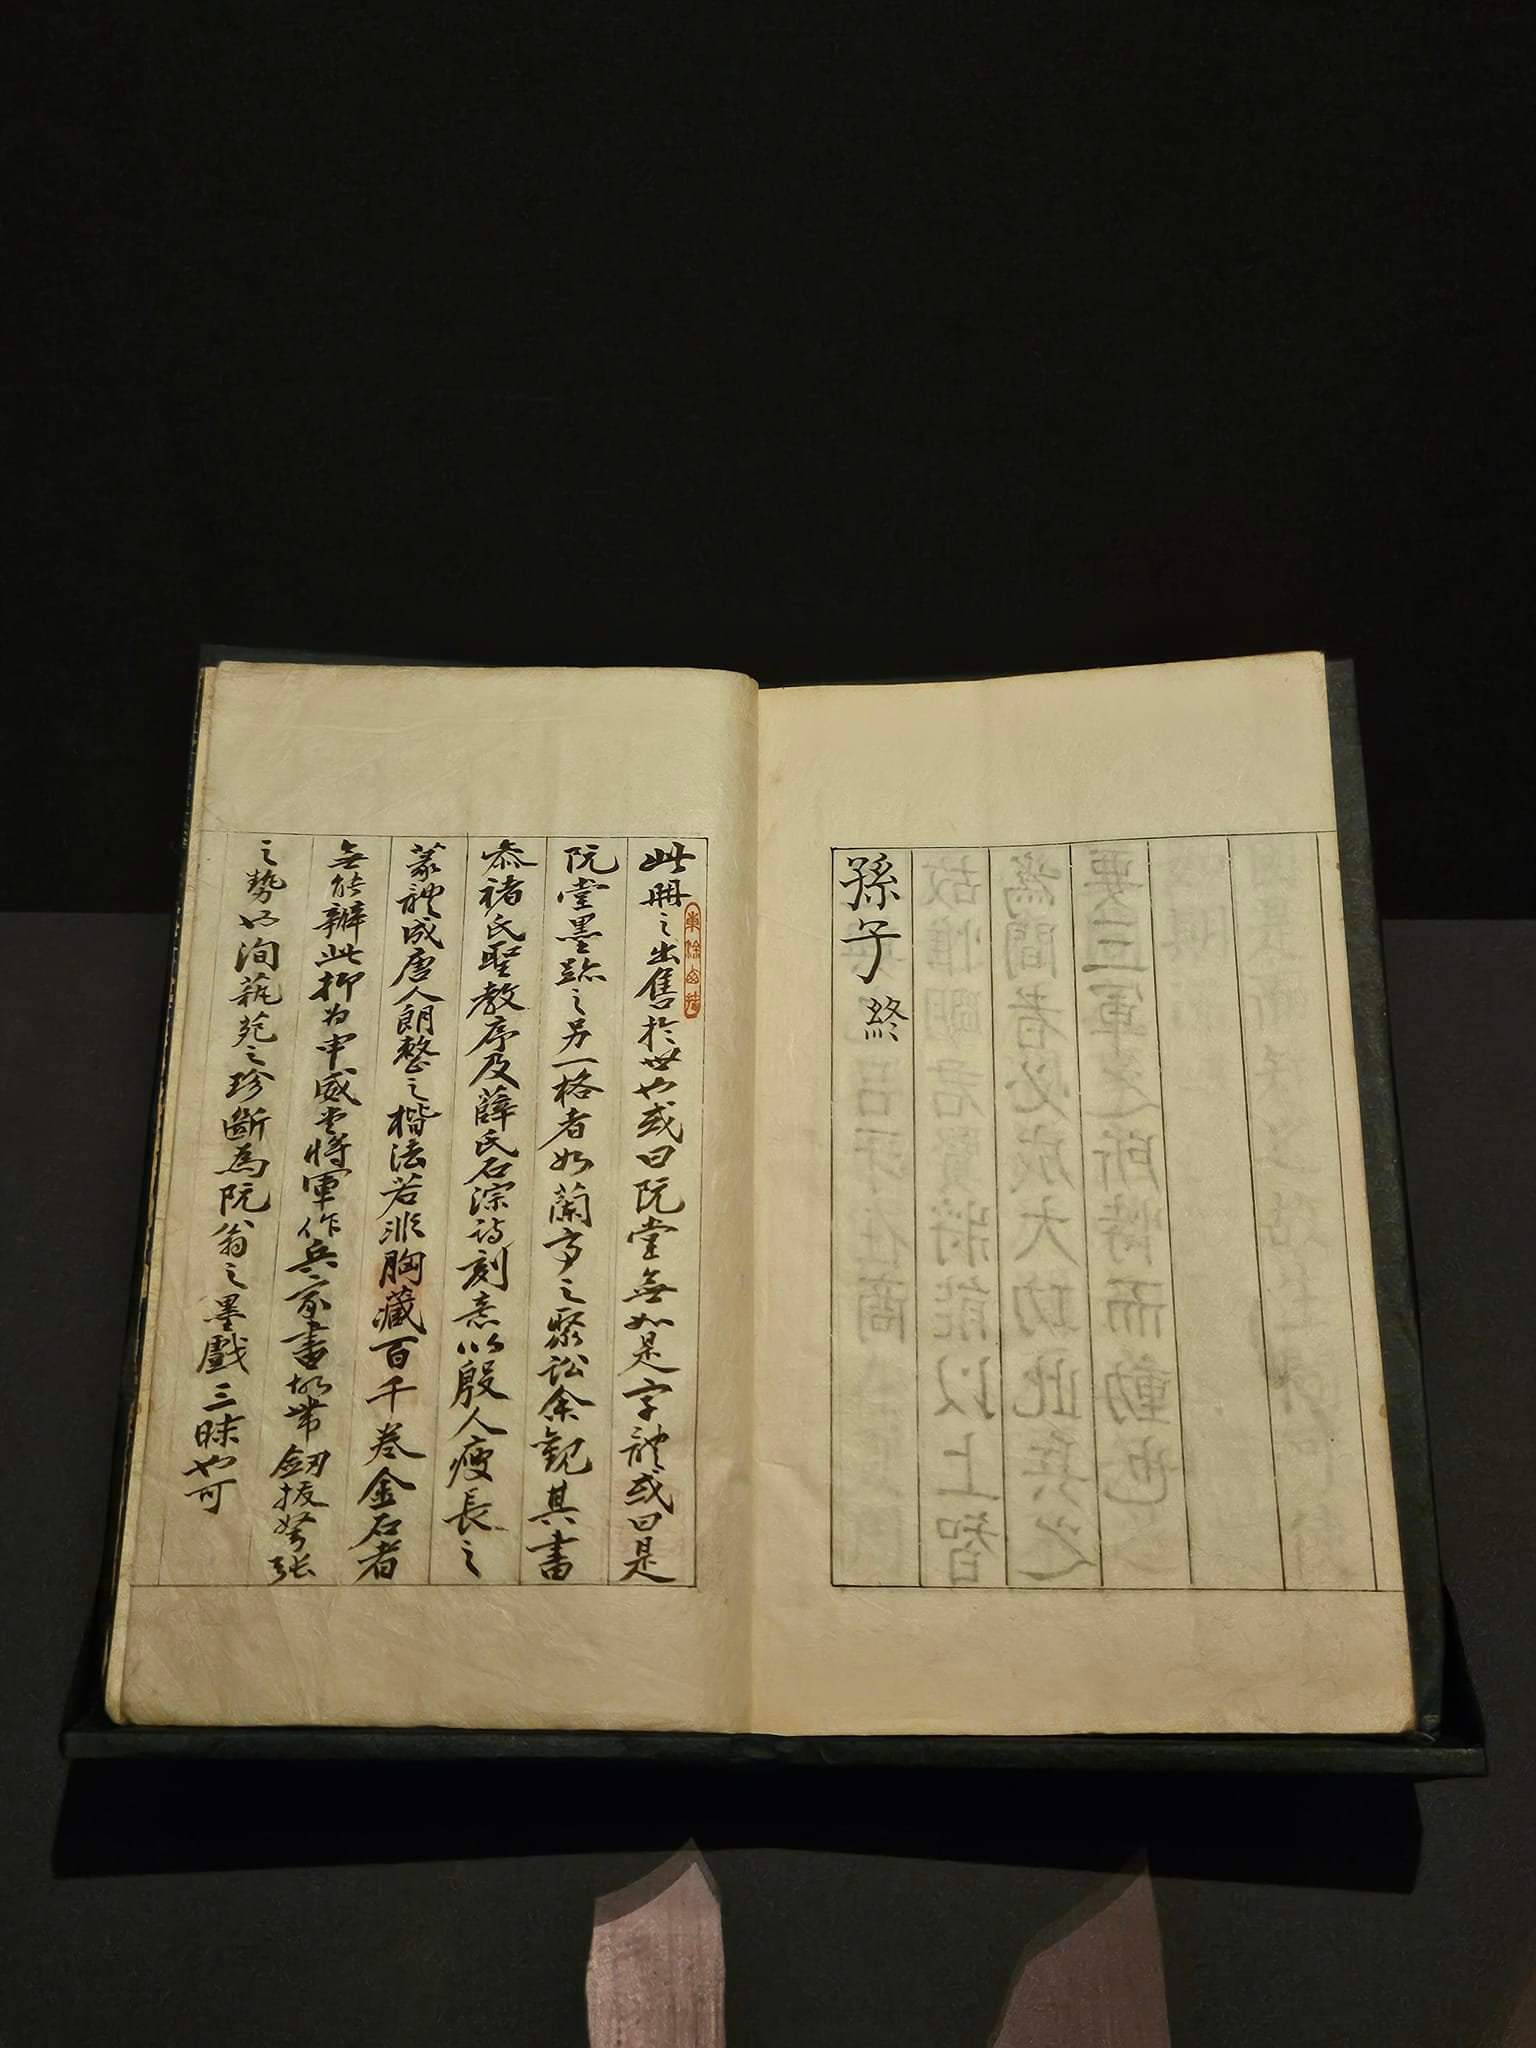 孫子終
此冊之出售於世也或曰阮堂無如是字體或曰是
阮堂墨跡之另一格者如蘭亭之聚訟余觀其書
叅褚氏聖教序及薛氏石淙詩刻意以殷人瘦長之
篆體成唐人朗整之楷法若非胸藏百千卷金石者
無能辦此抑為申威堂將軍作兵家書故帶劒拔弩張
之勢也洵藝苑之珍斷為阮翁之墨戲三昧也可